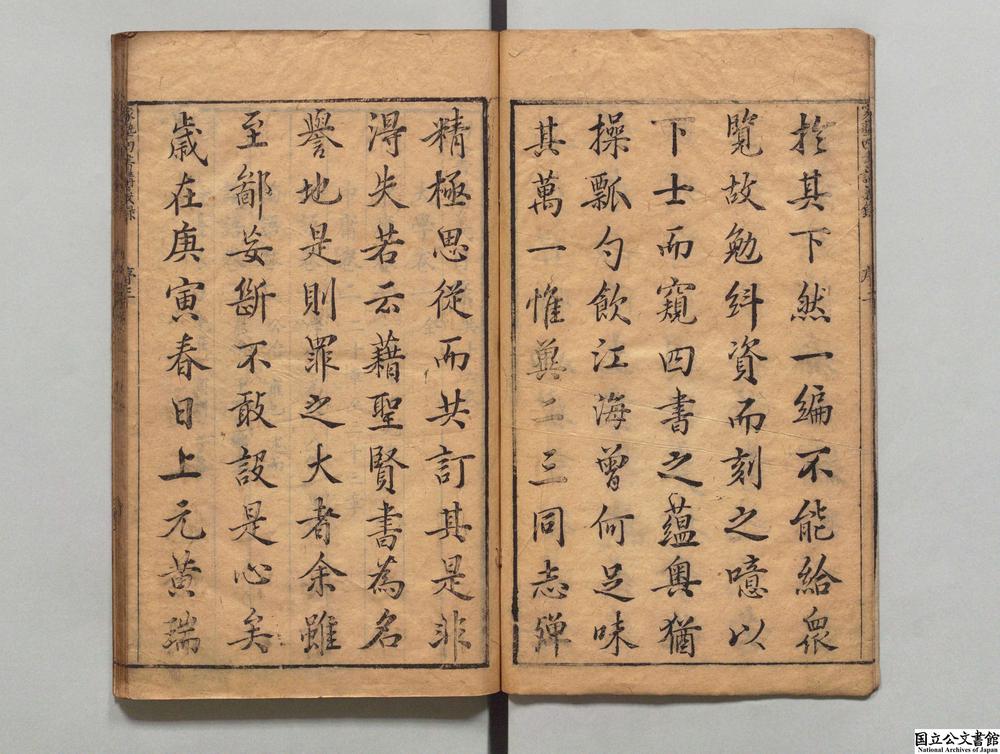 於其下然一編不能給衆
覽故勉糾資而刻之噫以
下士而窺四書之蘊奧猶
操瓢勺飲江海曾何足味
其萬一惟冀二三同志殫
精極思從而共訂其是非
淂失若云藉聖賢書為名
譽地是則罪之大者余雖
至鄙妄斷不敢設是心矣
歲在庚寅春日上元黃瑞
国立公文書館
National Archives of Japan